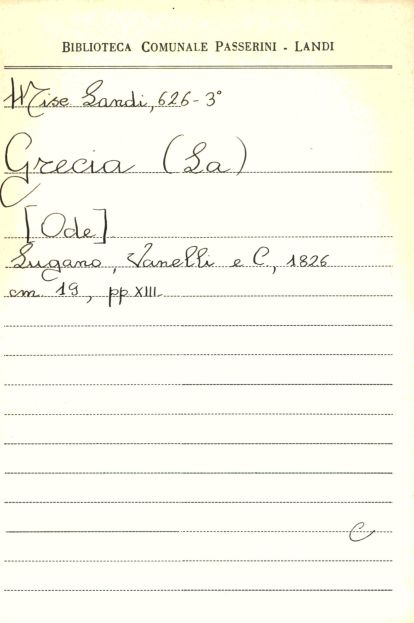 BIBLIOTECA COMUNALE PASSERINI - LANDI
Misc Landi, 626 - 3°
Grecia (La)
[Ode]
Lugano, Vanelli e C, 1826
cm 19, pp XIII
C